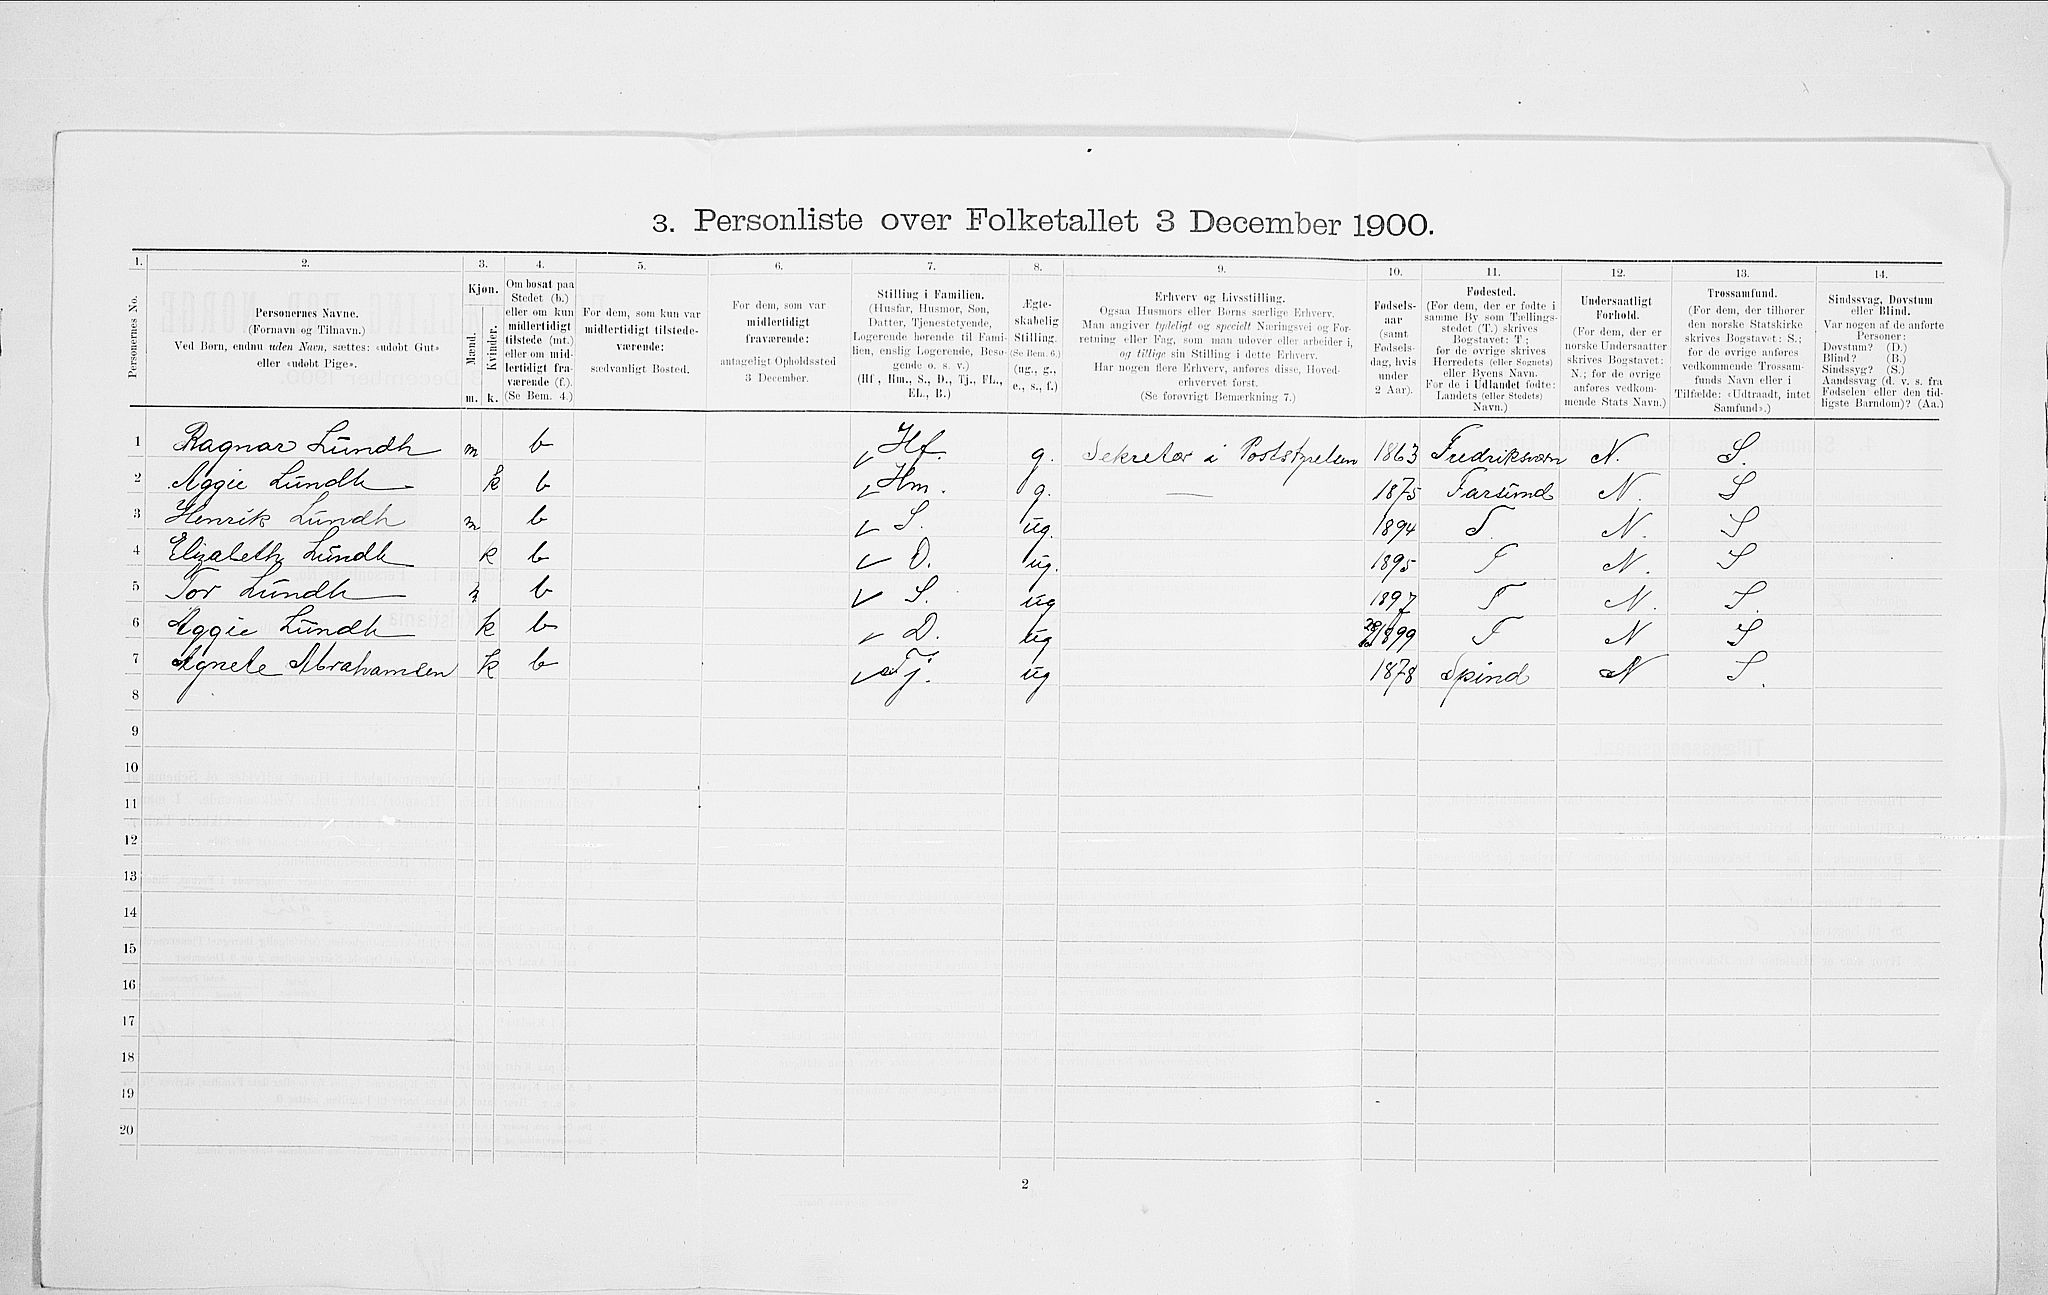 3. Personliste over Folketallet 3 December 1900.
1. 2. 3. 4. 5. 6. 7. 8. 9. 10. 11. 12. 13. 14.
Personernes No.
Personernes Navne.
(Fornavn og Tilnavn.)
Ved Børn, endnu uden Navn, sættes: «udøbt Gut»
eller «udøbt Pige».
Kjøn.
Mænd.
Kvinder.
m. k.
Om bosat paa
Stedet (b.)
eller om kun
midlertidigt
tilstede (mt.)
eller om mid-
lertidigt fra-
værende (f.).
(Se Bem. 4.)
For dem, som kun var
midlertidigt tilstede-
værende:
sædvanligt Bosted.
For dem, som var
midlertidigt
fraværende:
antageligt Opholdssted
3 December.
Stilling i Familien.
(Husfar, Husmor, Søn,
Datter, Tjenestetyende,
Logerende hørende til Fami-
lien, enslig Logerende, Besø-
gende o. s. v.)
(Hf., Hm., S., D., Tj., FL.,
EL., B.)
Ægte-
skabelig
Stilling.
(Se Bem. 6.)
(ug., g.,
e., s., f.)
Erhverv og Livsstilling.
Ogsaa Husmors eller Børns særlige Erhverv.
Man angiver tydeligt og specielt Næringsvei og For-
retning eller Fag, som man udøver eller arbeider i,
og tillige sin Stilling i dette Erhverv.
Har nogen flere Erhverv, anføres disse, Hoved-
erhvervet først.
(Se forøvrigt Bemærkning 7.)
Fødsels-
aar
(samt
Fødsels-
dag, hvis
under
2 Aar).
Fødested.
(For dem, der er fødte i
samme By som Tællings-
stedet (T.) skrives
Bogstavet: T;
for de øvrige skrives
Herredets (eller Sognets)
eller Byens Navn.
For de i Udlandet fødte:
Landets (eller Stedets)
Navn.)
Undersaatligt
Forhold.
(For dem, der er
norske Undersaatter
skrives Bogstavet:
N.; for de øvrige
anføres vedkom-
mende Stats Navn.)
Trossamfund.
(For dem, der tilhører
den norske Statskirke
skrives Bogstavet: S.;
for de øvrige anføres
vedkommende Trossam-
funds Navn eller i
Tilfælde: «Udtraadt, intet
Samfund».)
Sindssvag, Døvstum
eller Blind.
Var nogen af de anførte
Personer:
Døvstum? (D.)
Blind? (B.)
Sindssyg? (S.)
Aandssvag (d. v. s. fra
Fødselen eller den tid-
ligste Barndom)? (Aa.)
1 Ragnar Lundh m b Hf. g. Sekretær i Poststyrelsen 1863 Fredriksværn N. S.
2 Aggie Lundh k b Hm. g. — 1875 Farsund N. S
3 Henrik Lundh m b S. ug. 1894 T. N. S
4 Elizabeth Lundh k b D. ug. 1895 T N. S
5 Tor Lundh m b S. ug 1897 T N. S.
6 Aggie Lundh k b D. ug 1899 T N S
7 Agnete Abrahamsen k b Tj. ug 1878 Spind N S.
8
9
10
11
12
13
14
15
16
17
18
19
20
2